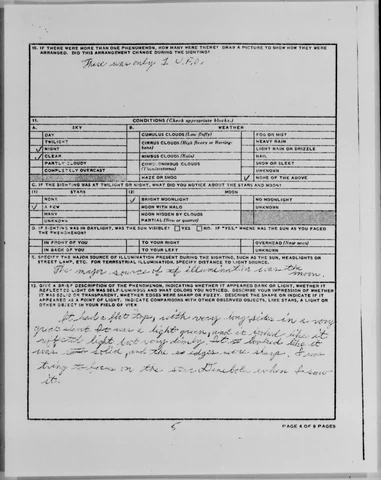 10. IF THERE WERE MORE THAN ONE PHENOMENON, HOW MANY WERE THERE? DRAW A PICTURE TO SHOW HOW THEY WERE
ARRANGED. DID THIS ARRANGEMENT CHANGE DURING THE SIGHTING?
There was only 1 U.F.O.
11. CONDITIONS (Check appropriate blocks.)
A. SKY B. WEATHER
DAY CUMULUS CLOUDS (Low fluffy) FOG OR MIST
TWILIGHT CIRRUS CLOUDS (High fleecy or Herring-bone) HEAVY RAIN
✓ NIGHT LIGHT RAIN OR DRIZZLE
✓ CLEAR NIMBUS CLOUDS (Rain) HAIL
PARTLY CLOUDY CUMULONIMBUS CLOUDS (Thunderstorms) SNOW OR SLEET
COMPLETELY OVERCAST UNKNOWN
HAZE OR SMOG ✓ NONE OF THE ABOVE
C. IF THE SIGHTING WAS AT TWILIGHT OR NIGHT, WHAT DID YOU NOTICE ABOUT THE STARS AND MOON?
(1) STARS (2) MOON
NONE ✓ BRIGHT MOONLIGHT NO MOONLIGHT
✓ A FEW MOON WITH HALO UNKNOWN
MANY MOON HIDDEN BY CLOUDS
UNKNOWN PARTIAL (New or quarter)
D. IF SIGHTING WAS IN DAYLIGHT, WAS THE SUN VISIBLE? YES NO. IF "YES," WHERE WAS THE SUN AS YOU FACED
THE PHENOMENON?
IN FRONT OF YOU TO YOUR RIGHT OVERHEAD (Near noon)
IN BACK OF YOU TO YOUR LEFT UNKNOWN
E. SPECIFY THE MAJOR SOURCE OF ILLUMINATION PRESENT DURING THE SIGHTING, SUCH AS THE SUN, HEADLIGHTS OR
STREET LAMP, ETC. FOR TERRESTRIAL ILLUMINATION, SPECIFY DISTANCE TO LIGHT SOURCE.
The major source of illumination was the
moon.
12. GIVE A BRIEF DESCRIPTION OF THE PHENOMENON, INDICATING WHETHER IT APPEARED DARK OR LIGHT, WHETHER IT
REFLECTED LIGHT OR WAS SELF LUMINOUS AND WHAT COLORS YOU NOTICED. DESCRIBE YOUR IMPRESSION OF WHETHER
IT WAS SOLID OR TRANSPARENT. WHETHER EDGES WERE SHARP OR FUZZY. DESCRIBE THE SHAPE OR INDICATE IF IT
APPEARED AS A POINT OF LIGHT. INDICATE COMPARISONS WITH OTHER OBSERVED OBJECTS, LIKE STARS, A LIGHT OR
OTHER OBJECT IN YOUR FIELD OF VIEW.
It had a flat top, with away long sides in a very
great slant. It was a light green, and it looked like it
reflected light but very dimly. It looked like it
was solid, and the edges were sharp. I was
trying to focus on the star Denebola when I saw
it.
5
PAGE 4 OF 8 PAGES